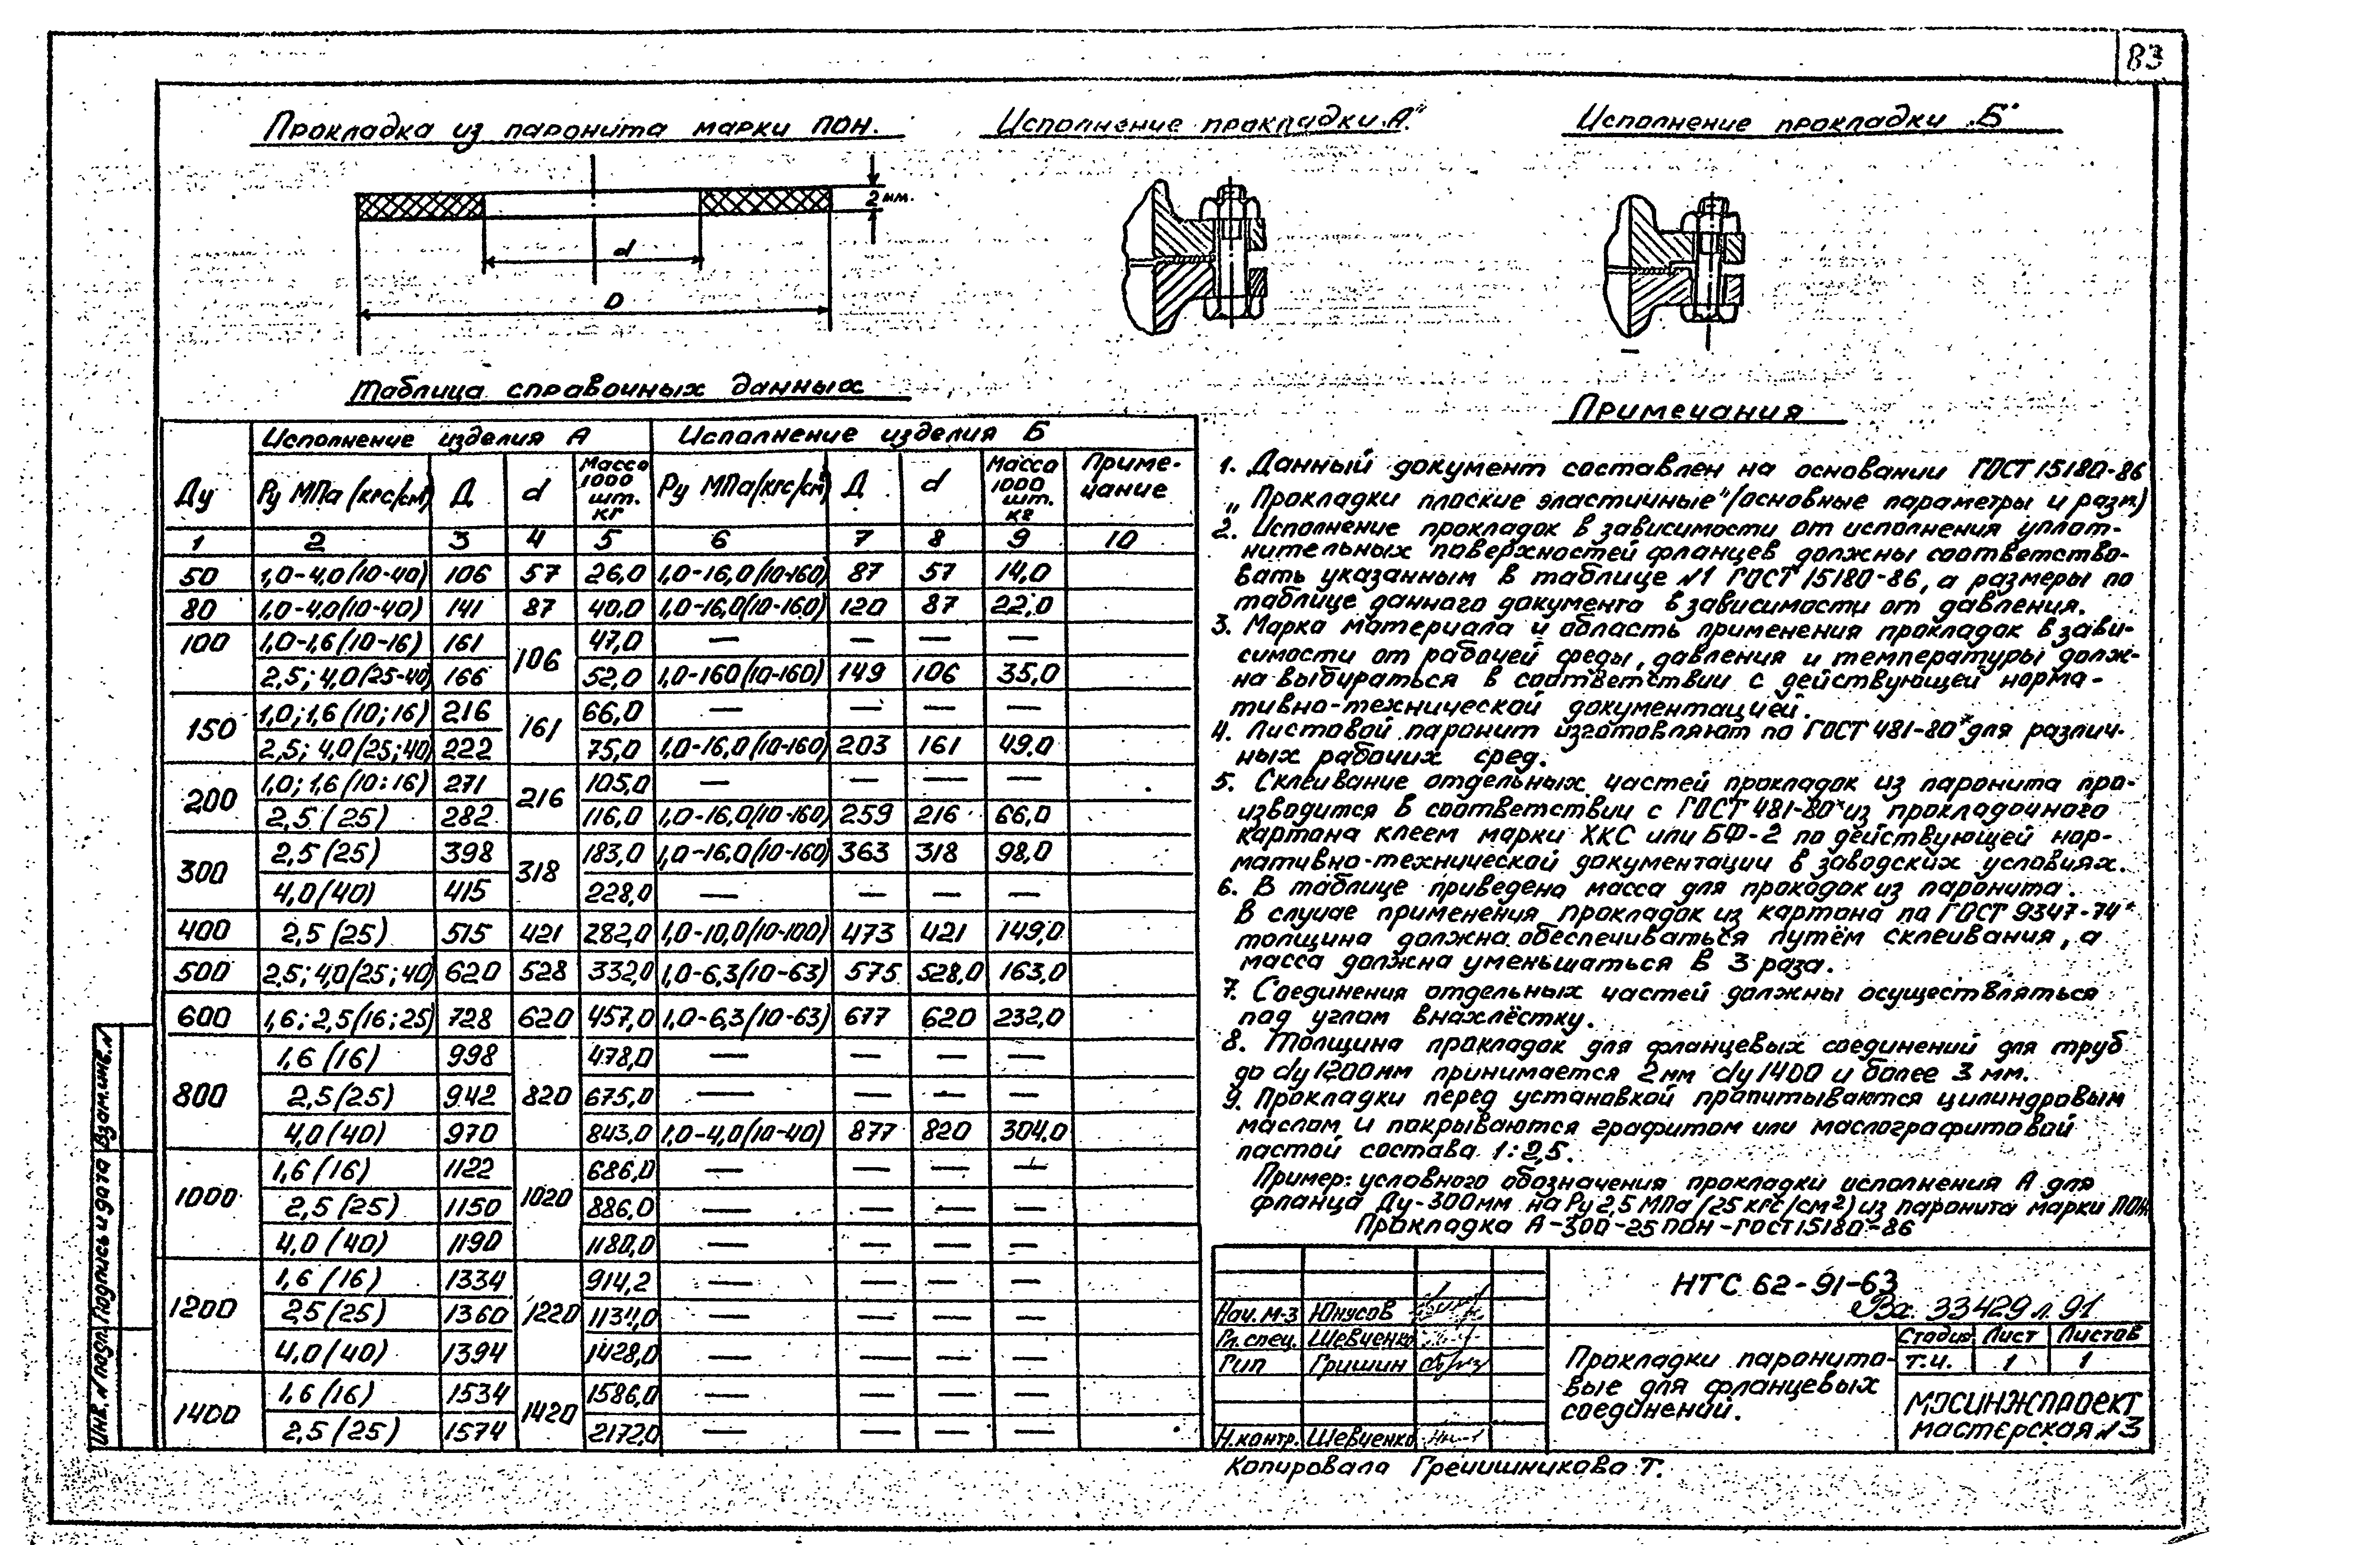 83
Прокладка из паронита марки ПОН.
Исполнение прокладки „А"
Исполнение прокладки „Б"
2 мм.
d
D
Таблица справочных данных
Ду | Исполнение изделия А | Исполнение изделия Б
Ру МПа (кгс/см²) | Д | d | Масса 1000 шт. кг | Ру МПа (кгс/см²) | Д | d | Масса 1000 шт. кг | Приме-чание
1 2 3 4 5 6 7 8 9 10
50 1,0-4,0(10-40) 106 57 26,0 1,0-16,0(10-160) 87 57 14,0
80 1,0-4,0(10-40) 141 87 40,0 1,0-16,0(10-160) 120 87 22,0
100 1,0-1,6(10-16) 161 106 47,0 — — — —
2,5; 4,0(25-40) 166 52,0 1,0-160(10-160) 149 106 35,0
150 1,0; 1,6(10; 16) 216 161 66,0 — — — —
2,5; 4,0(25; 40) 222 75,0 1,0-16,0(10-160) 203 161 49,0
200 1,0; 1,6(10; 16) 271 216 105,0 — — — —
2,5(25) 282 116,0 1,0-16,0(10-160) 259 216 66,0
300 2,5(25) 398 318 183,0 1,0-16,0(10-160) 363 318 98,0
4,0(40) 415 228,0 — — — —
400 2,5(25) 515 421 282,0 1,0-10,0(10-100) 473 421 149,0
500 2,5; 4,0(25; 40) 620 528 332,0 1,0-6,3(10-63) 575 528,0 163,0
600 1,6; 2,5(16; 25) 728 620 457,0 1,0-6,3(10-63) 677 620 232,0
800 1,6(16) 998 820 478,0 — — — —
2,5(25) 942 675,0 — — — —
4,0(40) 970 843,0 1,0-4,0(10-40) 877 820 304,0
1000 1,6(16) 1122 1020 686,0 — — — —
2,5(25) 1150 886,0 — — — —
4,0(40) 1190 1180,0 — — — —
1200 1,6(16) 1334 1220 914,2 — — — —
2,5(25) 1360 1134,0 — — — —
4,0(40) 1394 1428,0 — — — —
1400 1,6(16) 1534 1420 1586,0 — — — —
2,5(25) 1574 2172,0 — — — —
Примечания
1. Данный документ составлен на основании ГОСТ 15180-86
„Прокладки плоские эластичные" (основные параметры и разм.)
2. Исполнение прокладок в зависимости от исполнения уплот-
нительных поверхностей фланцев должны соответство-
вать указанным в таблице №1 ГОСТ 15180-86, а размеры по
таблице данного документа в зависимости от давления.
3. Марка материала и область применения прокладок в зави-
симости от рабочей среды, давления и температуры долж-
на выбираться в соответствии с действующей норма-
тивно-технической документацией.
4. Листовой паронит изготовляют по ГОСТ 481-80* для различ-
ных рабочих сред.
5. Склеивание отдельных частей прокладок из паронита про-
изводится в соответствии с ГОСТ 481-80* из прокладочного
картона клеем марки ХКС или БФ-2 по действующей нор-
мативно-технической документации в заводских условиях.
6. В таблице приведена масса для прокодок из паронита.
В случае применения прокладок из картона по ГОСТ 9347-74*
толщина должна обеспечиваться путём склеивания, а
масса должна уменьшаться в 3 раза.
7. Соединения отдельных частей должны осуществляться
под углом внахлёстку.
8. Толщина прокладок для фланцевых соединений для труб
до dу 1200мм принимается 2мм dу 1400 и более 3 мм.
9. Прокладки перед установкой пропитываются цилиндровым
маслом и покрываются графитом или маслографитовой
пастой состава 1:2,5.
Пример: условного обозначения прокладки исполнения А для
фланца Ду-300мм на Ру 2,5 МПа (25 кгс/см²) из паронита марки ПОН
Прокладка А-300-25 ПОН-ГОСТ 15180-86
НТС 62-91-63
Вх. 33429 л. 91
Нач. М-3 Юнусов
Гл. спец. Шевченко
Гип Гришин
Н.контр. Шевченко
Прокладки паронито-
вые для фланцевых
соединений.
Стадия Лист Листов
Т.ч. 1 1
МОСИНЖПРОЕКТ
мастерская №3
Копировала Гречишникова Т.
Взам.инв.№
Подпись и дата
Инв.№ подл.